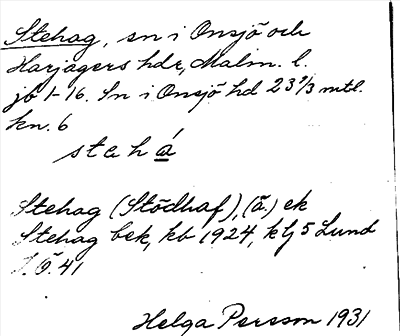 Stehag, sn i Onsjö och
Harjagers hdr, Malm. l.
jb 1-16. Sn i Onsjö hd 23 2/3 mtl.
kn. 6
s t a h á
Stehag (Stödhaf), (ā.) ek
Stehag bek, kb 1924, klj 5 Lund
S.Ö. 41
Helga Persson 1931